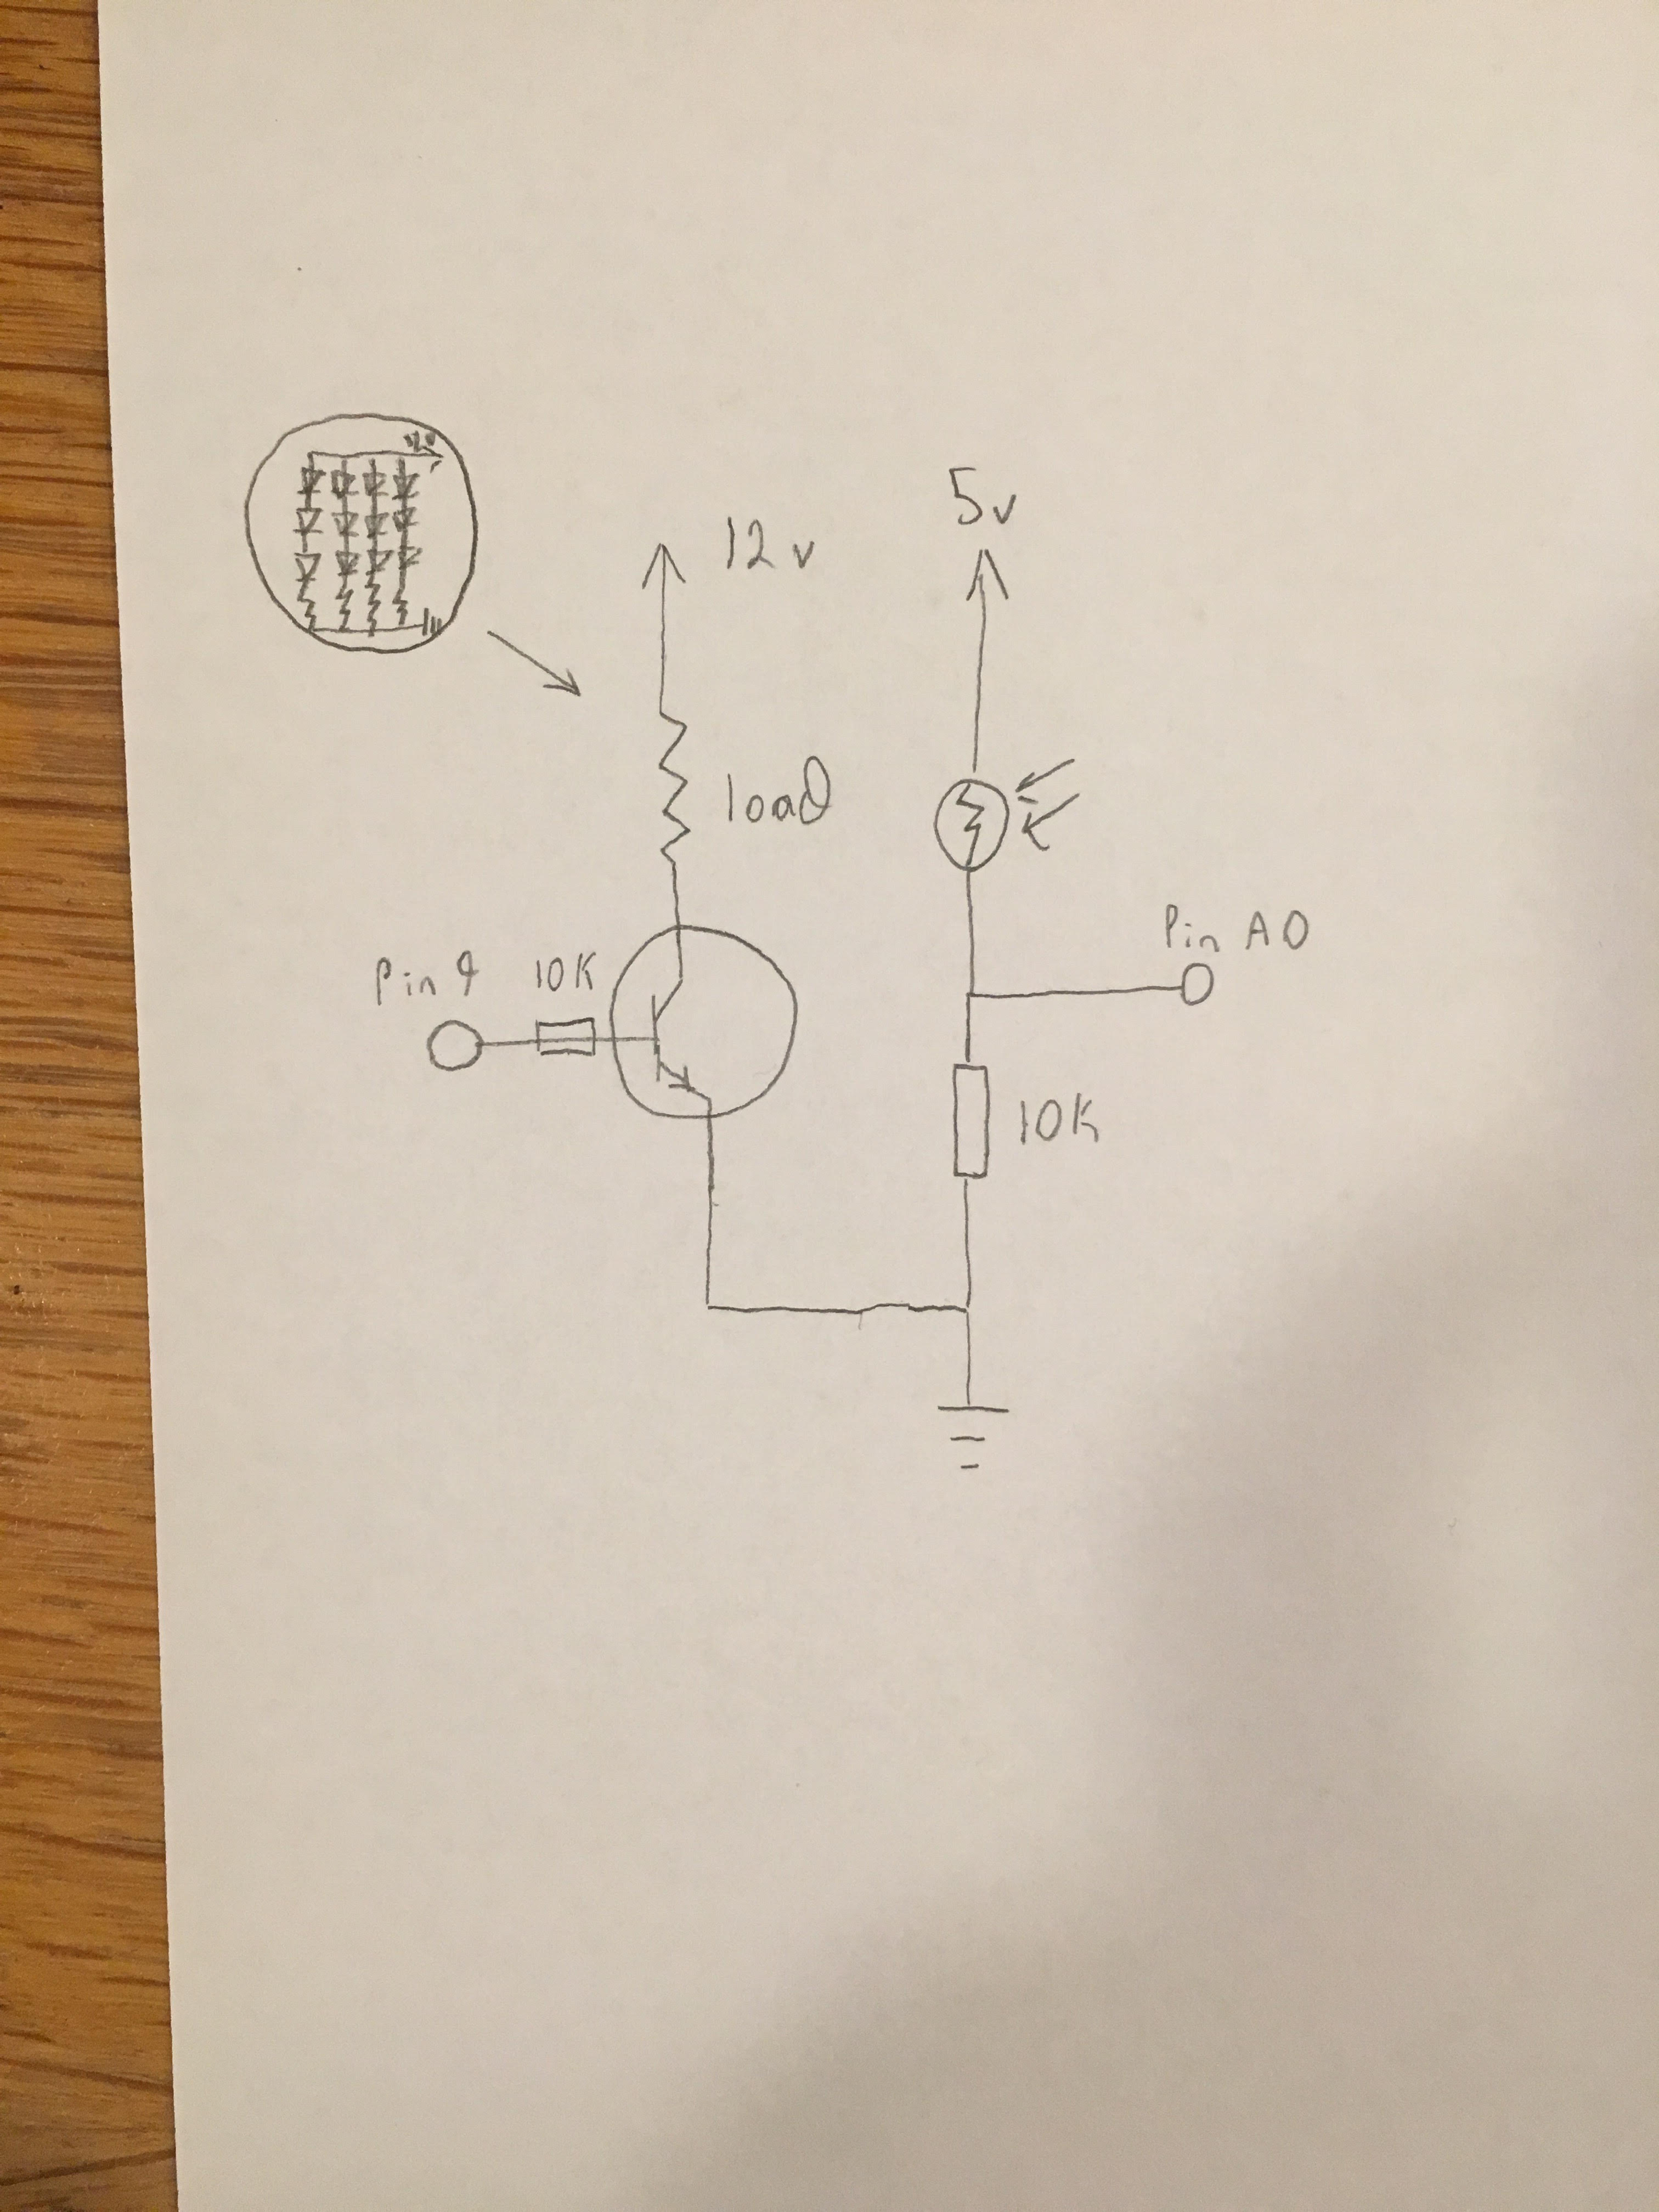 5v
12v
load
Pin 9
10K
Pin A0
10K